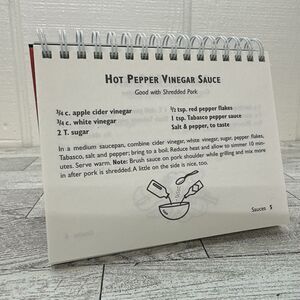 Hot Pepper Vinegar Sauce
Good with Shredded Pork
3/4 c. apple cider vinegar
3/4 c. white vinegar
2 T. sugar
1/2 tsp. red pepper flakes
1 tsp. Tabasco pepper sauce
Salt & pepper, to taste
In a medium saucepan, combine cider vinegar, white vinegar, sugar, pepper flakes,
Tabasco, salt and pepper; bring to a boil. Reduce heat and allow to simmer 10 min-
utes. Serve warm. Note: Brush sauce on pork shoulder while grilling and mix more
in after pork is shredded. A little on the side is nice, too.
Sauces 5